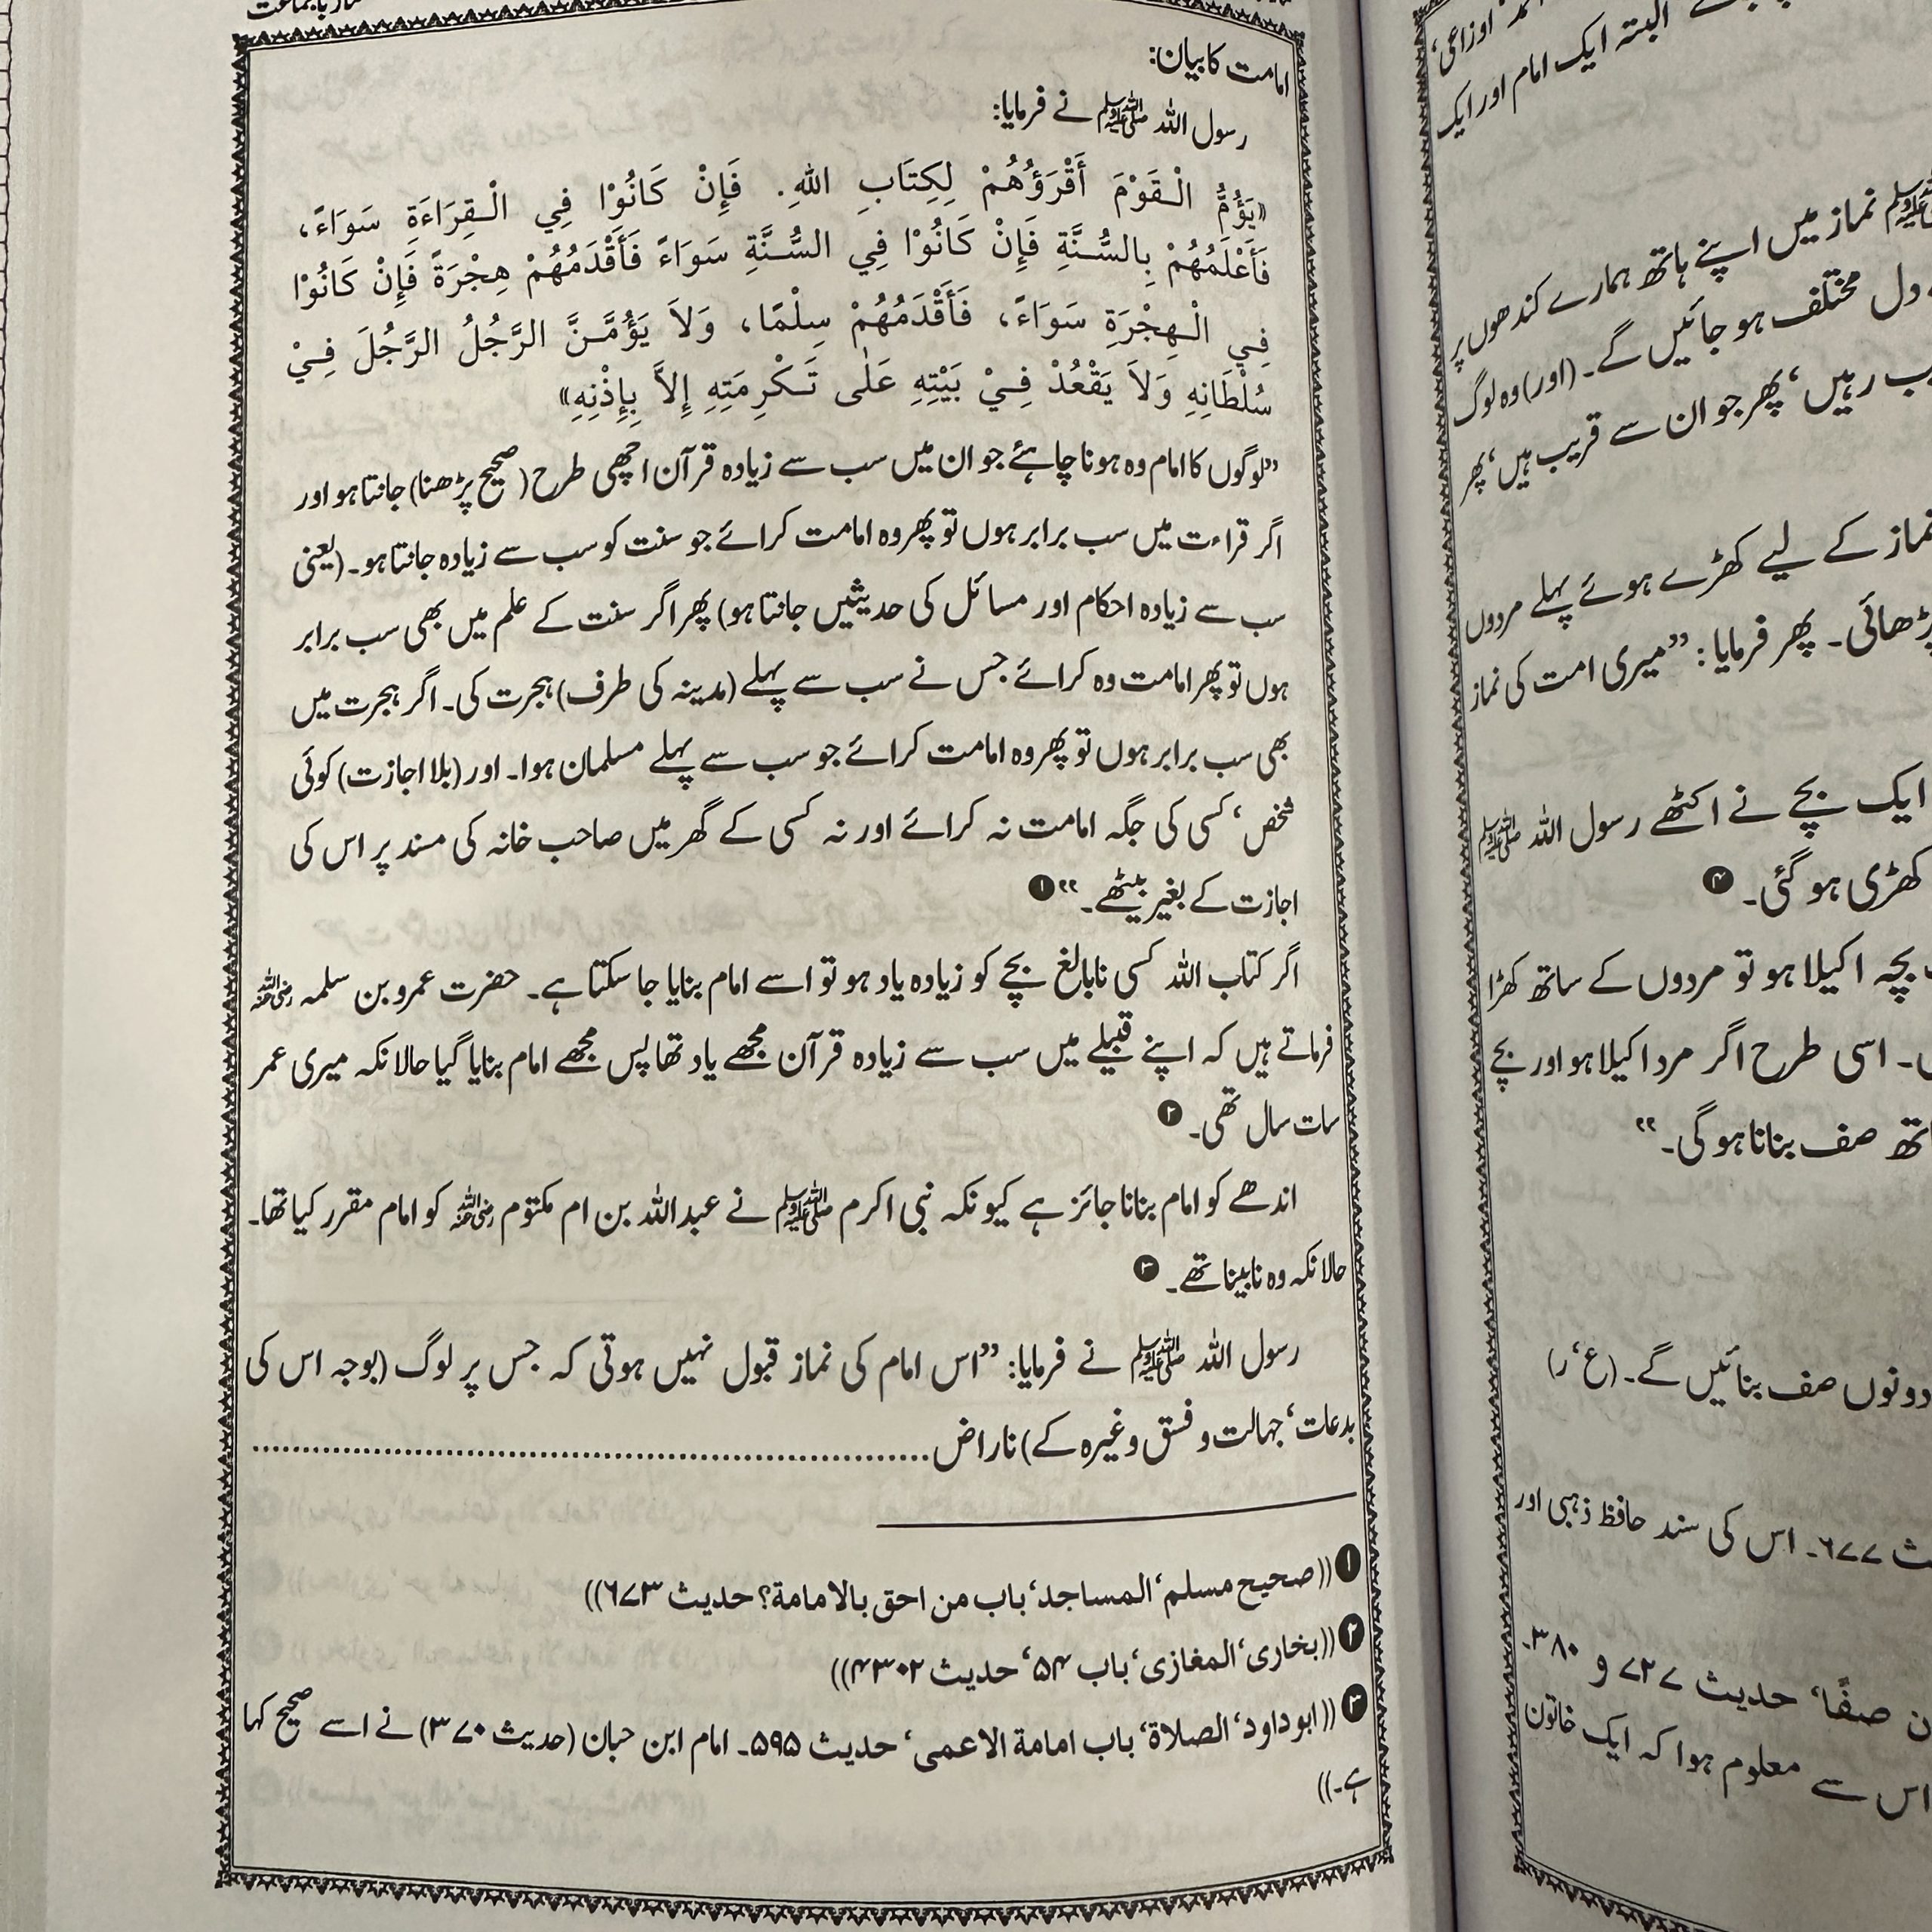 امامت کا بیان:
رسول اللہ ﷺ نے فرمایا:
«يَؤُمُّ الْقَوْمَ أَقْرَؤُهُمْ لِكِتَابِ اللهِ. فَإِنْ كَانُوْا فِي الْقِرَاءَةِ سَوَاءً،
فَأَعْلَمُهُمْ بِالسُّنَّةِ فَإِنْ كَانُوْا فِي السُّنَّةِ سَوَاءً فَأَقْدَمُهُمْ هِجْرَةً فَإِنْ كَانُوْا
فِي الْهِجْرَةِ سَوَاءً، فَأَقْدَمُهُمْ سِلْمًا، وَلاَ يَؤُمَّنَّ الرَّجُلُ الرَّجُلَ فِيْ
سُلْطَانِهِ وَلاَ يَقْعُدْ فِيْ بَيْتِهِ عَلٰى تَكْرِمَتِهِ إِلاَّ بِإِذْنِهِ»
”لوگوں کا امام وہ ہونا چاہئے جو ان میں سب سے زیادہ قرآن اچھی طرح (صحیح پڑھنا) جانتا ہو اور
اگر قراءت میں سب برابر ہوں تو پھر وہ امامت کرائے جو سنت کو سب سے زیادہ جانتا ہو۔ (یعنی
سب سے زیادہ احکام اور مسائل کی حدیثیں جانتا ہو) پھر اگر سنت کے علم میں بھی سب برابر
ہوں تو پھر امامت وہ کرائے جس نے سب سے پہلے (مدینہ کی طرف) ہجرت کی۔ اگر ہجرت میں
بھی سب برابر ہوں تو پھر وہ امامت کرائے جو سب سے پہلے مسلمان ہوا۔ اور (بلا اجازت) کوئی
شخص‘ کسی کی جگہ امامت نہ کرائے اور نہ کسی کے گھر میں صاحب خانہ کی مسند پر اس کی
اجازت کے بغیر بیٹھے۔“ ❶
اگر کتاب اللہ کسی نابالغ بچے کو زیادہ یاد ہو تو اسے امام بنایا جا سکتا ہے۔ حضرت عمرو بن سلمہ رضی اللہ عنہ
فرماتے ہیں کہ اپنے قبیلے میں سب سے زیادہ قرآن مجھے یاد تھا پس مجھے امام بنایا گیا حالانکہ میری عمر
سات سال تھی۔ ❷
اندھے کو امام بنانا جائز ہے کیونکہ نبی اکرم ﷺ نے عبداللہ بن ام مکتوم رضی اللہ عنہ کو امام مقرر کیا تھا۔
حالانکہ وہ نابینا تھے۔ ❸
رسول اللہ ﷺ نے فرمایا: ”اس امام کی نماز قبول نہیں ہوتی کہ جس پر لوگ (بوجہ اس کی
بدعات‘ جہالت و فسق وغیرہ کے) ناراض..........
❶ ((صحیح مسلم‘ المساجد‘ باب من احق بالامامة؟ حدیث ۶۷۳))
❷ ((بخاری‘ المغازی‘ باب ۵۴‘ حدیث ۴۳۰۲))
❸ ((ابو داود‘ الصلاة‘ باب امامة الاعمی‘ حدیث ۵۹۵۔ امام ابن حبان (حدیث ۳۷۰) نے اسے صحیح کہا
ہے۔))
اوزاعی‘
البتہ ایک امام اور ایک
ﷺ نماز میں اپنے ہاتھ ہمارے کندھوں پر
دل مختلف ہو جائیں گے۔ (اور) وہ لوگ
رہیں‘ پھر جو ان سے قریب ہیں‘ پھر
نماز کے لیے کھڑے ہوئے پہلے مردوں
پڑھائی۔ پھر فرمایا: ”میری امت کی نماز
ایک بچے نے اکٹھے رسول اللہ ﷺ
کھڑی ہو گئی۔ ❹
بچہ اکیلا ہو تو مردوں کے ساتھ کھڑا
اسی طرح اگر مرد اکیلا ہو اور بچے
صف بنانا ہو گی۔“
دونوں صف بنائیں گے۔ (ع‘ ر)
۶۷۷۔ اس کی سند حافظ ذہبی اور
صفًا‘ حدیث ۷۲۷ و ۳۸۰۔
اس سے معلوم ہوا کہ ایک خاتون